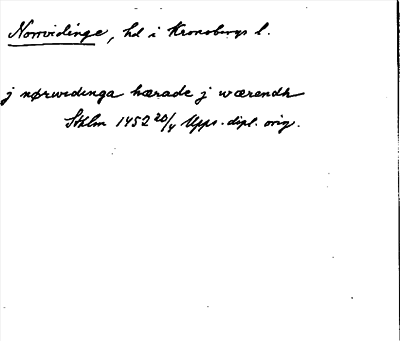 Norrvidinge, hd i Kronobergs l.
j nørwidinga hærade j wærendh
Sthlm 1452 20/4 Upps. dipl. orig.